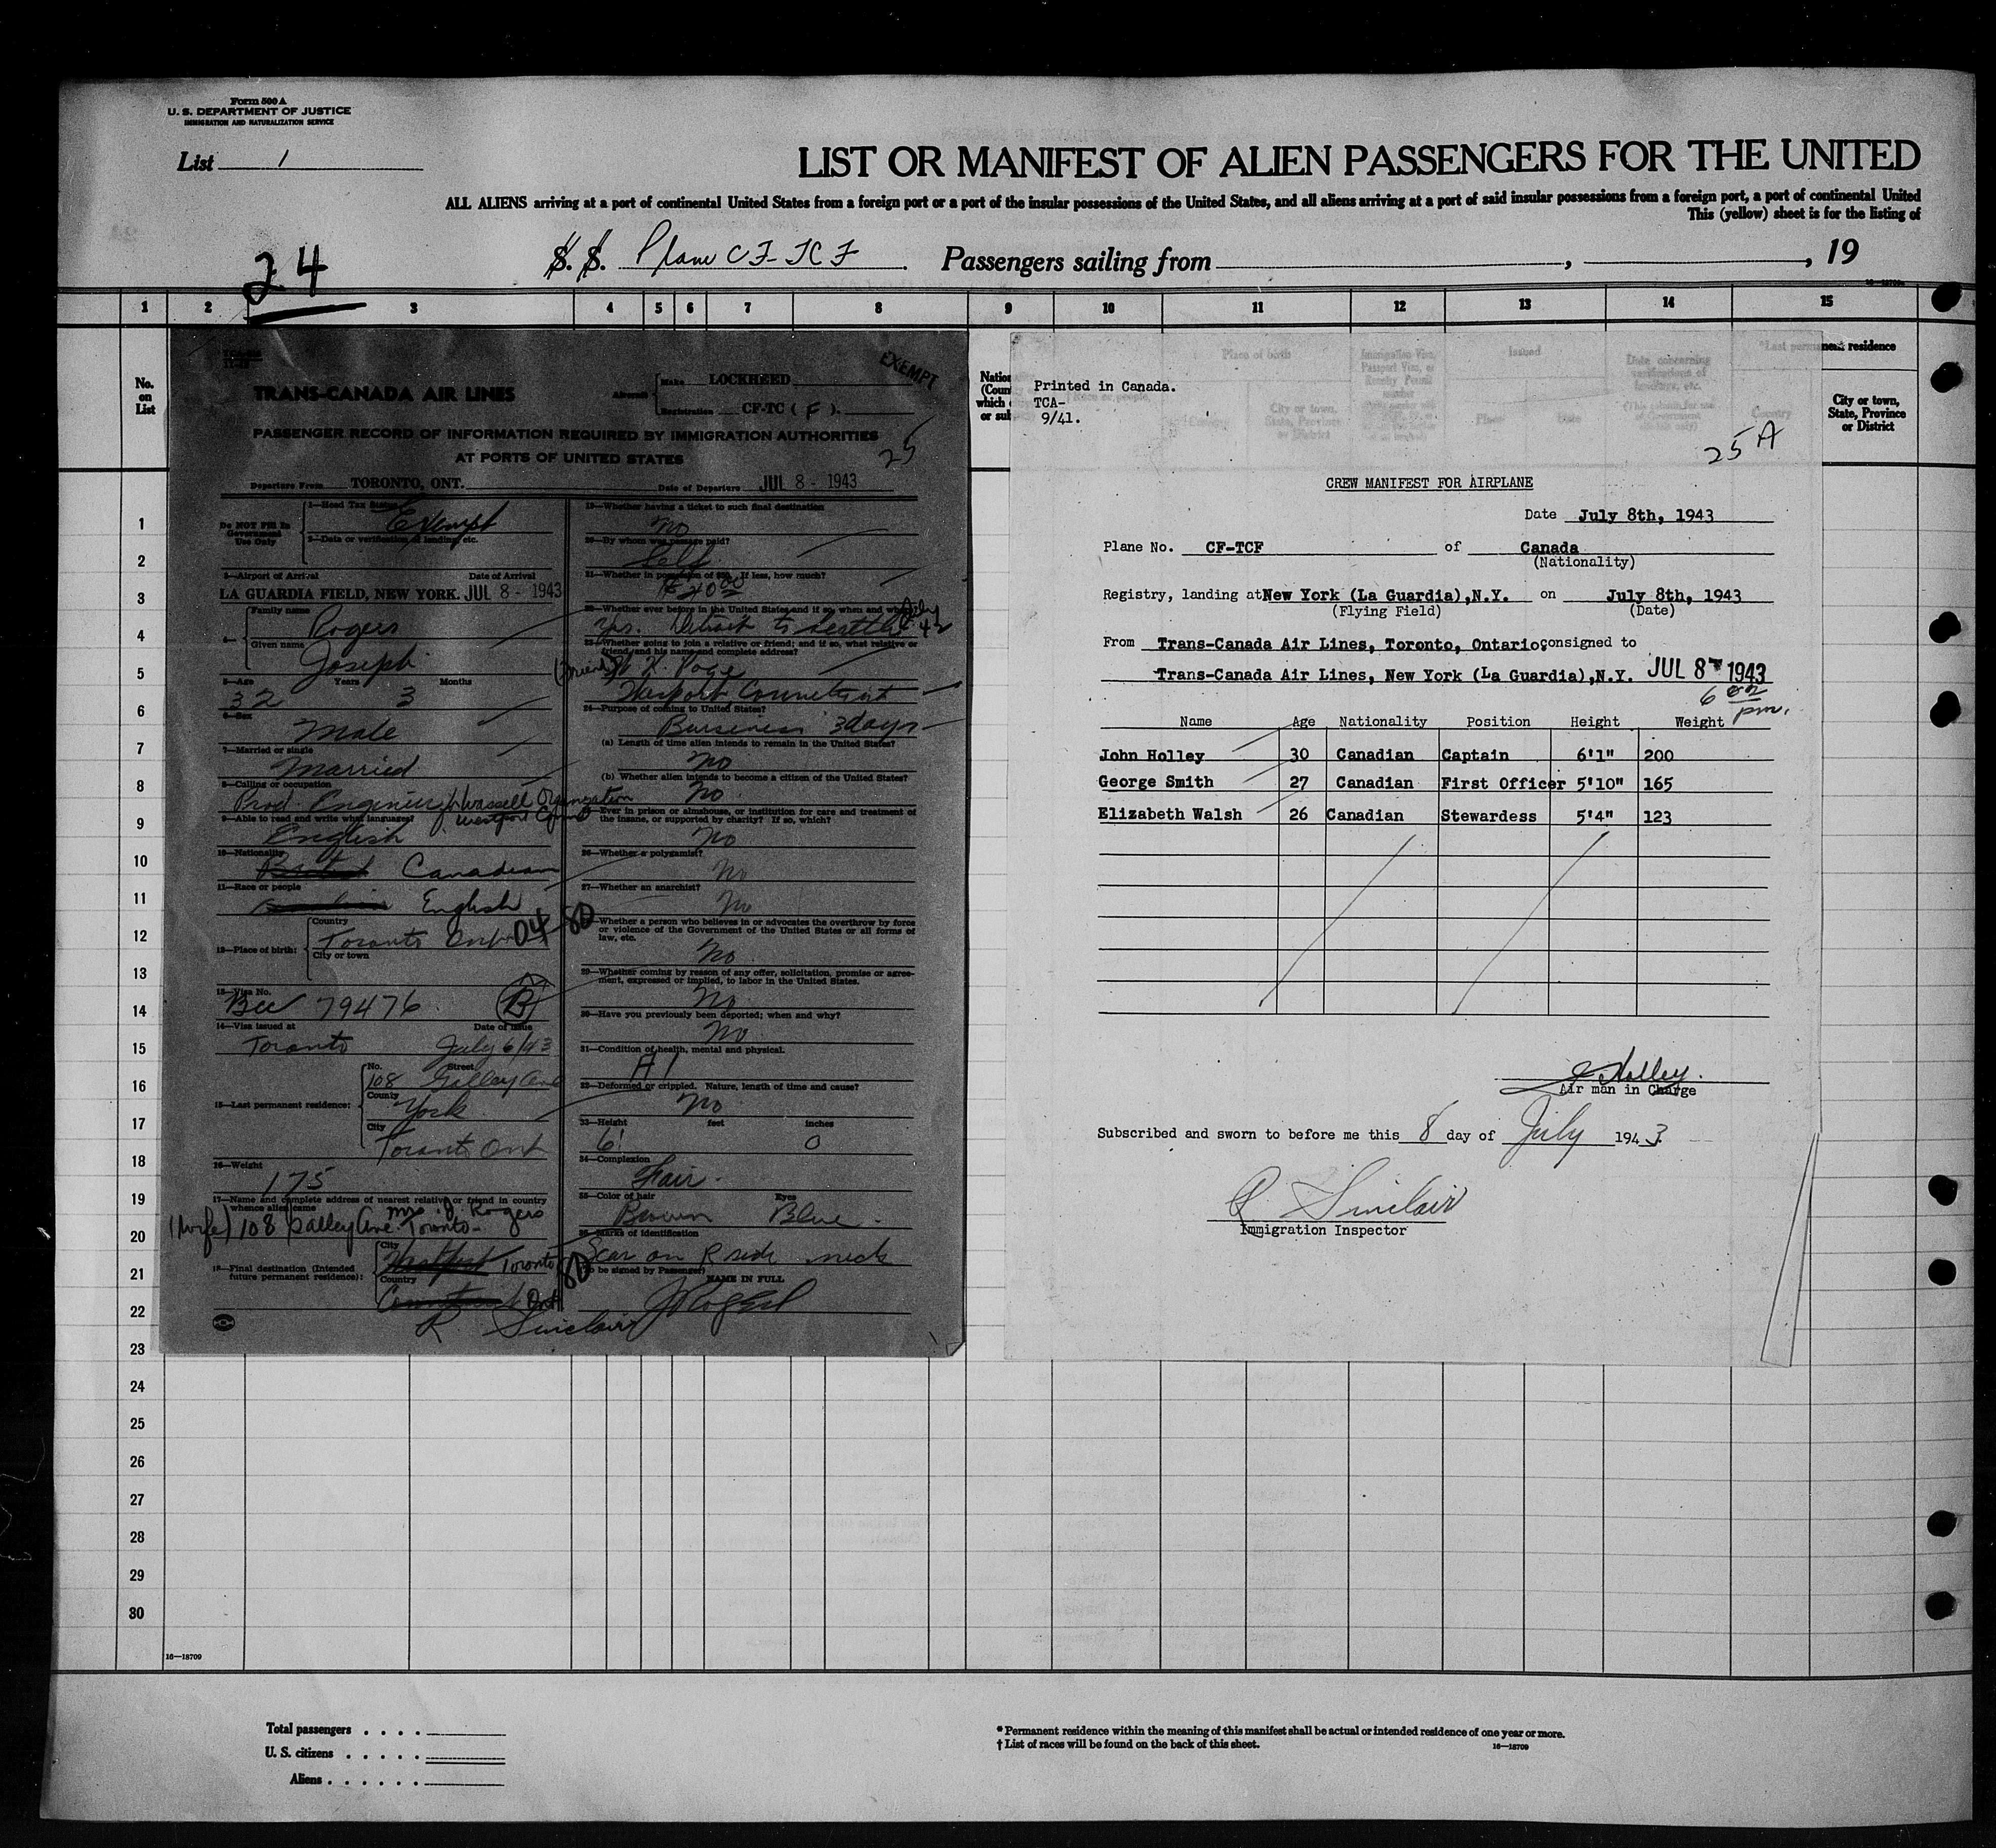 Form 500 A
U. S. DEPARTMENT OF JUSTICE
IMMIGRATION AND NATURALIZATION SERVICE
List 1
LIST OR MANIFEST OF ALIEN PASSENGERS FOR THE UNITED
ALL ALIENS arriving at a port of continental United States from a foreign port or a port of the insular possessions of the United States, and all aliens arriving at a port of said insular possessions from a foreign port, a port of continental United
This (yellow) sheet is for the listing of
24
S. S. Plane CF-TCF Passengers sailing from , , 19
1 2 3 4 5 6 7 8 9 10 11 12 13 14 15
No. on List
EXEMPT
TRANS-CANADA AIR LINES
Aircraft
Make LOCKHEED
Registration CF-TC ( F ).
PASSENGER RECORD OF INFORMATION REQUIRED BY IMMIGRATION AUTHORITIES
AT PORTS OF UNITED STATES
25
Departure From TORONTO, ONT. Date of Departure JUL 8 - 1943
Do NOT Fill In Government Use Only
1—Head Tax Status Exempt
2—Data or verification of landing, etc.
3—Airport of Arrival Date of Arrival
LA GUARDIA FIELD, NEW YORK. JUL 8 - 1943
4—
Family name Rogers
Given name Joseph
5—Age Years Months
32 3
6—Sex
Male
7—Married or single
Married
8—Calling or occupation
Prod. Engineer Wassell Organization
Westport Conn
9—Able to read and write what languages?
English
10—Nationality
Canadian
11—Race or people
English
12—Place of birth:
Country
Toronto Ont 04 8D
City or town
13—Visa No.
Bcc 79476 B
14—Visa issued at Date of Issue
Toronto July 6/43
15—Last permanent residence:
No. Street
108 Galley Ave
County
York
City
Toronto Ont
16—Weight
175
17—Name and complete address of nearest relative or friend in country
whence alien came
Mrs. J. Rogers
(wife) 108 Galley Ave. Toronto-
18—Final destination (Intended future permanent residence):
City
Westport Toronto 8D
Country
Connecticut Ont
19—Whether having a ticket to such final destination
No
20—By whom was passage paid?
Self
21—Whether in possession of $50. If less, how much?
$40.00
22—Whether ever before in the United States and if so, when and where?
Yes. Detroit to Seattle July 42
23—Whether going to join a relative or friend; and if so, what relative or
friend, and his name and complete address?
(Friend)
Westport Connecticut
24—Purpose of coming to United States?
Business 3 days
(a) Length of time alien intends to remain in the United States?
No
(b) Whether alien intends to become a citizen of the United States?
No
25—Ever in prison or almshouse, or institution for care and treatment of
the insane, or supported by charity? If so, which?
No
26—Whether a polygamist?
No
27—Whether an anarchist?
No
28—Whether a person who believes in or advocates the overthrow by force
or violence of the Government of the United States or all forms of
law, etc.
No
29—Whether coming by reason of any offer, solicitation, promise or agree-
ment, expressed or implied, to labor in the United States.
No
30—Have you previously been deported; when and why?
No
31—Condition of health, mental and physical.
A1
32—Deformed or crippled. Nature, length of time and cause?
No
33—Height feet inches
6' 0
34—Complexion
Fair.
35—Color of hair Eyes
Brown Blue.
36—Marks of identification
Scar on R side neck
(To be signed by Passenger) NAME IN FULL
J Rogers
R Sinclair
Printed in Canada.
TCA-
9/41.
Place of birth
Immigration Visa, Passport Visa, or Reentry Permit number
Issued
Date concerning verifications of landings, etc.
*Last permanent residence
City or town, State, Province or District
Place Date
Country
City or town, State, Province or District
25 A
CREW MANIFEST FOR AIRPLANE
Date July 8th, 1943
Plane No. CF-TCF of Canada
(Nationality)
Registry, landing at New York (La Guardia),N.Y. on July 8th, 1943
(Flying Field) (Date)
From Trans-Canada Air Lines, Toronto, Ontario, consigned to
Trans-Canada Air Lines, New York (La Guardia),N.Y. JUL 8 - 1943
6 00 pm.
Name Age Nationality Position Height Weight
John Holley 30 Canadian Captain 6'1" 200
George Smith 27 Canadian First Officer 5'10" 165
Elizabeth Walsh 26 Canadian Stewardess 5'4" 123
J Holley.
Air man in Charge
Subscribed and sworn to before me this 8 day of July 1943
R Sinclair
Immigration Inspector
1
2
3
4
5
6
7
8
9
10
11
12
13
14
15
16
17
18
19
20
21
22
23
24
25
26
27
28
29
30
16—18709
Total passengers . . . .
U. S. citizens . . . . .
Aliens . . . . . .
* Permanent residence within the meaning of this manifest shall be actual or intended residence of one year or more.
† List of races will be found on the back of this sheet.
16—18709